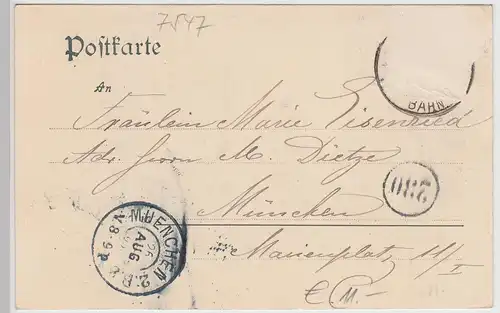 7547
Postkarte
An
BAHN
Fräulein Marie Eisenried
Adr. Herrn M. Dietze
München
Marienplatz 11/I
MUENCHEN 2.B.Z.
26
AUG
V. 8-9 N
€ 11.-